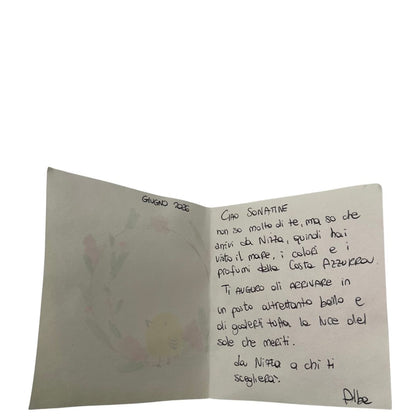 GIUGNO 2026
CIAO SONATINE
non so molto di te, ma so che
arrivi da Nizza, quindi hai
visto il mare, i colori e i
profumi della Costa AZZURRA.
TI AUGURO DI ARRIVARE IN
un posto altrettanto bello e
di goderti tutta la luce del
sole che meriti.
da Nizza a chi ti
sceglierà.
Alba